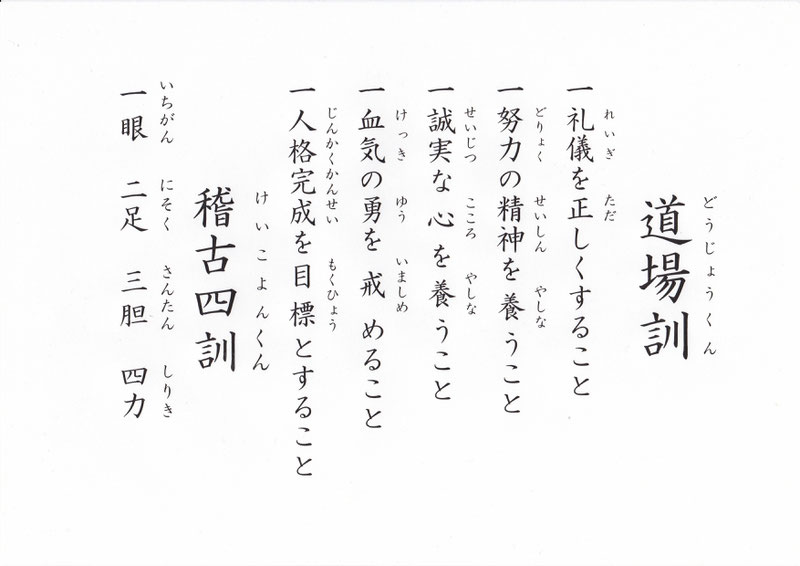 道場訓
どうじょうくん
一礼儀を正しくすること
れいぎ ただ
一努力の精神を養うこと
どりょく せいしん やしな
一誠実な心を養うこと
せいじつ こころ やしな
一血気の勇を戒めること
けっき ゆう いましめ
一人格完成を目標とすること
じんかくかんせい もくひょう
稽古四訓
けいこよんくん
一眼 二足 三胆 四力
いちがん にそく さんたん しりき